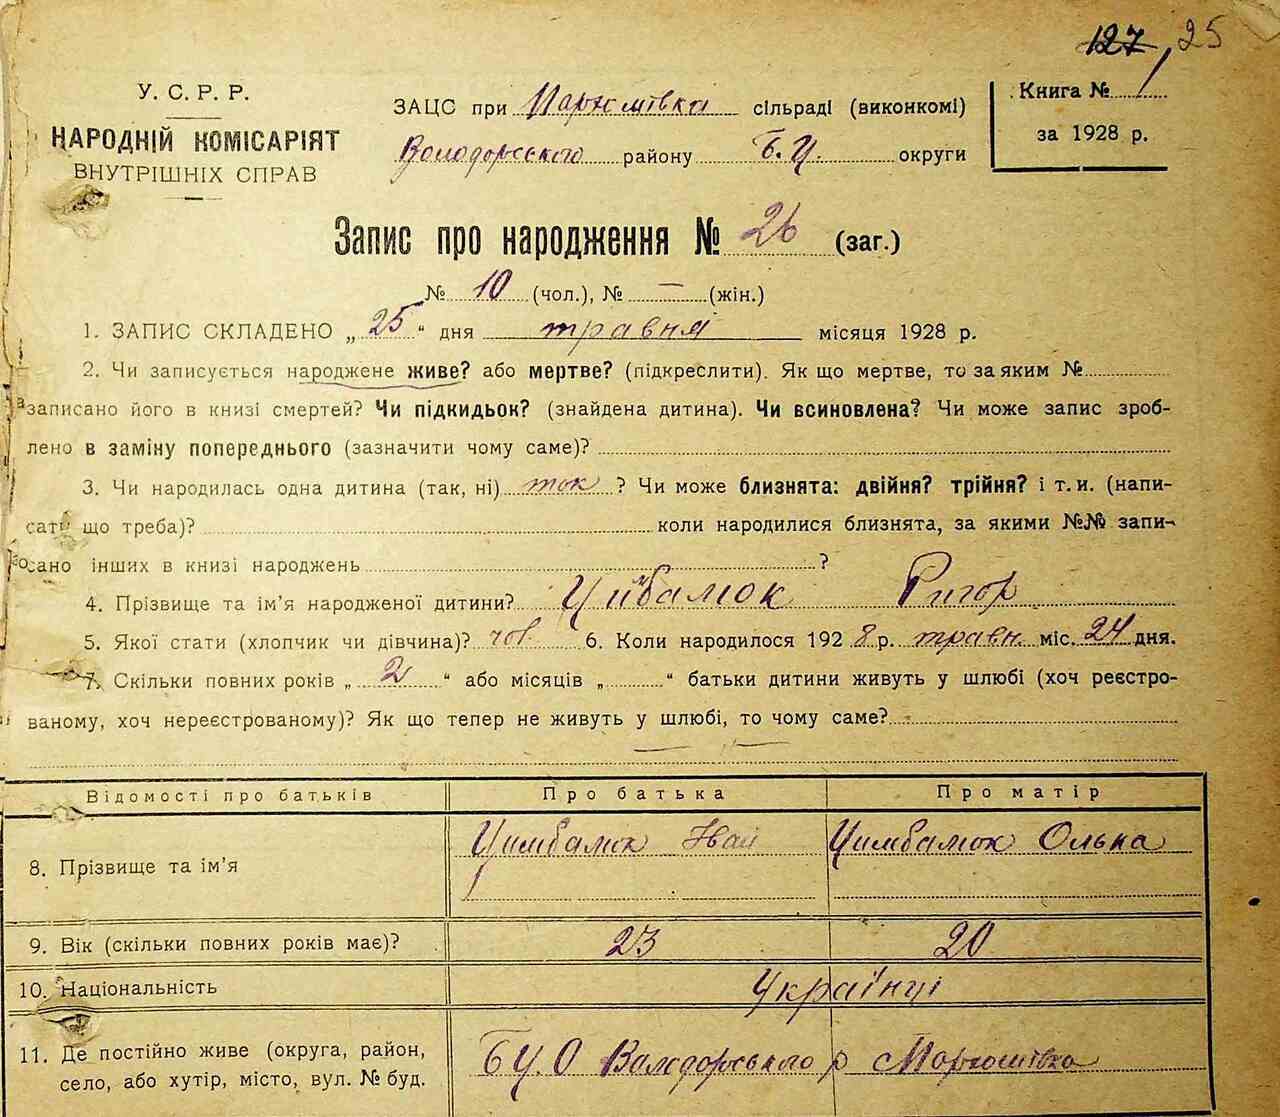 127 25
У. С. Р. Р.
НАРОДНІЙ КОМІСАРІЯТ
ВНУТРІШНІХ СПРАВ
ЗАЦС при сільраді (виконкомі)
Володорського району Б.Ц. округи
Книга № 1
за 1928 р.
Запис про народження № 26 (заг.)
№ 10 (чол.), № — (жін.)
1. ЗАПИС СКЛАДЕНО „ 25 “ дня травня місяця 1928 р.
2. Чи записується народжене живе? або мертве? (підкреслити). Як що мертве, то за яким №
записано його в книзі смертей? Чи підкидьок? (знайдена дитина). Чи всиновлена? Чи може запис зроб-
лено в заміну попереднього (зазначити чому саме)?
3. Чи народилась одна дитина (так, ні) так ? Чи може близнята: двійня? трійня? і т. и. (напи-
сати що треба)? коли народилися близнята, за якими №№ запи-
сано інших в книзі народжень ?
4. Прізвище та ім’я народженої дитини? Цимбалюк Ригор
5. Якої статі (хлопчик чи дівчина)? чол. 6. Коли народилося 1928 р. травн. міс. 24 дня.
7. Скільки повних років „ 2 “ або місяців „ “ батьки дитини живуть у шлюбі (хоч реєстро-
ваному, хоч нереєстрованому)? Як що тепер не живуть у шлюбі, то чому саме?
Відомості про батьків Про батька Про матір
8. Прізвище та ім’я Цимбалюк Іван Цимбалюк Олька
9. Вік (скільки повних років має)? 23 20
10. Національність Українці
11. Де постійно живе (округа, район,
село, або хутір, місто, вул. № буд.
БЦО Володорського р